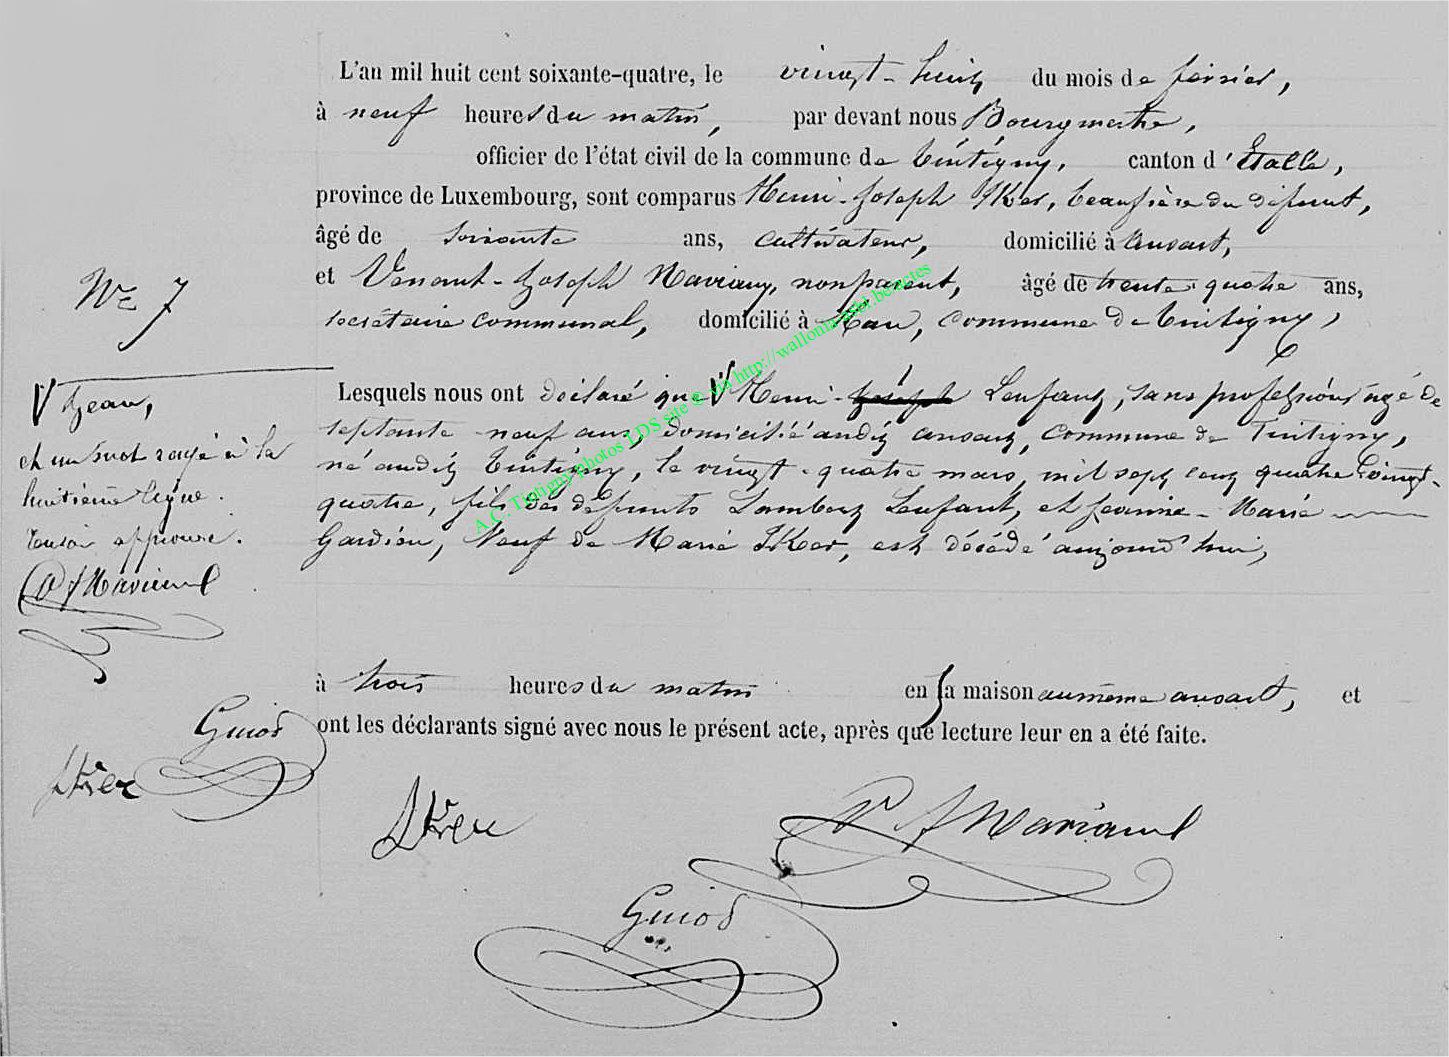 L'an mil huit cent soixante-quatre, le vingt-huit du mois de février,
à neuf heures du matin, par devant nous Bourgmestre,
officier de l'état civil de la commune de Tintigny, canton d'Etalle,
province de Luxembourg, sont comparus Henri-Joseph Iker, beaufrère du défunt,
âgé de soixante ans, cultivateur, domicilié à Ansart,
et Venant-Joseph Maviany, non parent, âgé de trente quatre ans,
secrétaire communal, domicilié à Han, commune de Tintigny,
Lesquels nous ont déclaré que V Henri- Lenfant, sans profession, âgé de
septante neuf ans, domicilié audit ansart, commune de Tintigny,
né audit Tintigny, le vingt-quatre mars mil sept cent quatre vingt-
quatre, fils des défunts Lambert Lenfant, et Jeanne-Marie
Gardien, Veuf de Marie Iker, est décédé aujourd'hui,
à trois heures du matin en sa maison au même ansart, et
ont les déclarants signé avec nous le présent acte, après que lecture leur en a été faite.
No 7
V Jean,
et un mot rayé à la
huitième ligne.
Renvoi approuvé.
Guiot
Iker
Iker
Guiot
A.C. Tintigny photos LDS site © via http://wallonia-asbl.be/actes